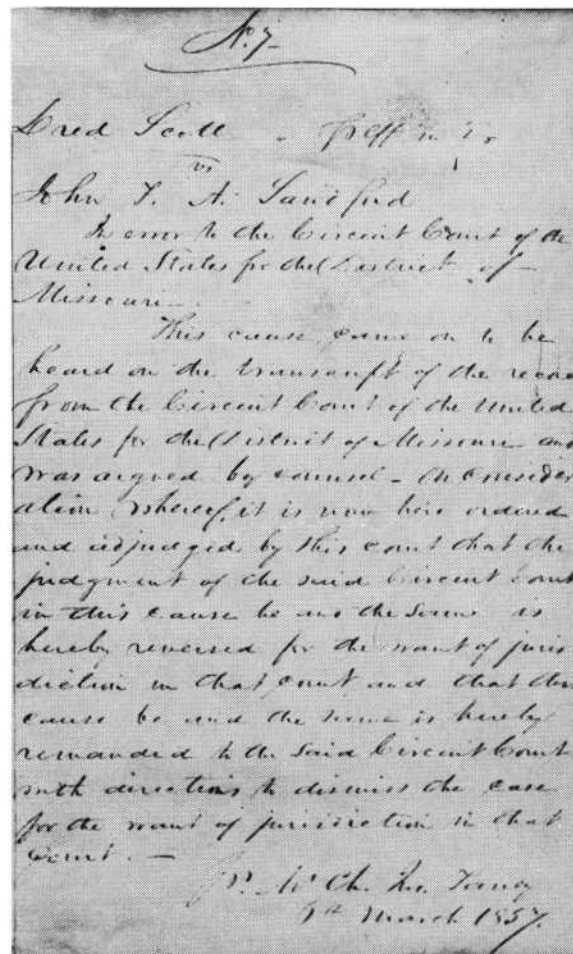 No. 7
Dred Scott - Plff in Er
vs
John F. A. Sandford
In error to the Circuit Court of the
United States for the District of
Missouri.
This cause came on to be
heard on the transcript of the recor
from the Circuit Court of the United
States for the District of Missouri and
was argued by counsel - On consider
ation whereof, it is now here ordered
and adjudged by this court that the
judgment of the said Circuit Court
in this cause be and the same is
hereby reversed for the want of juris
diction in that court and that this
cause be and the same is hereby
remanded to the said Circuit Court
with directions to dismiss the case
for the want of jurisdiction in that
Court. —
Ch. Jus. Taney
6th March 1857.